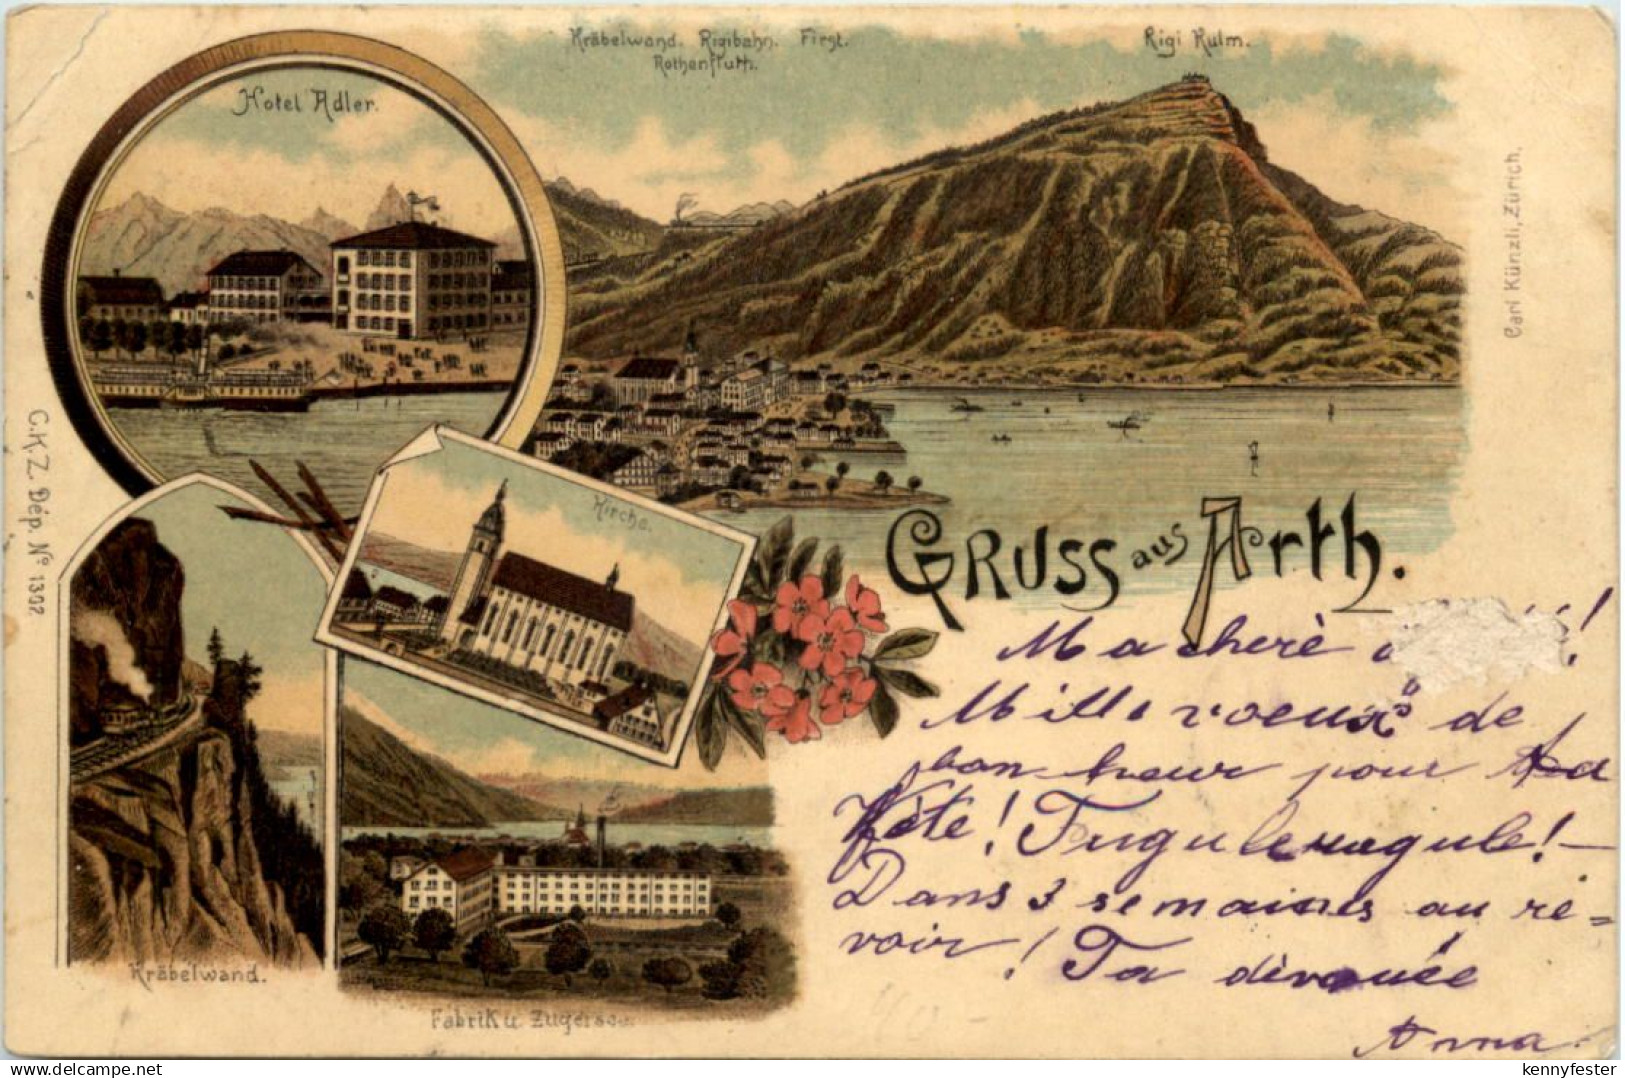 Kräbelwand. Rigibahn. First.
Rothenfluth.
Rigi Kulm.
Hotel Adler.
Carl Künzli, Zürich.
C.K.Z. Dép. Nº 1302
Kirche.
Gruss aus Arth.
Kräbelwand.
Fabrik u. Zugersee
Ma cherè
Mille voeux de
bon heur pour
fète!
Dans 3 semaines au re=
voir! Ta dèvouée
Anna.
delcampe.net
kennyfester